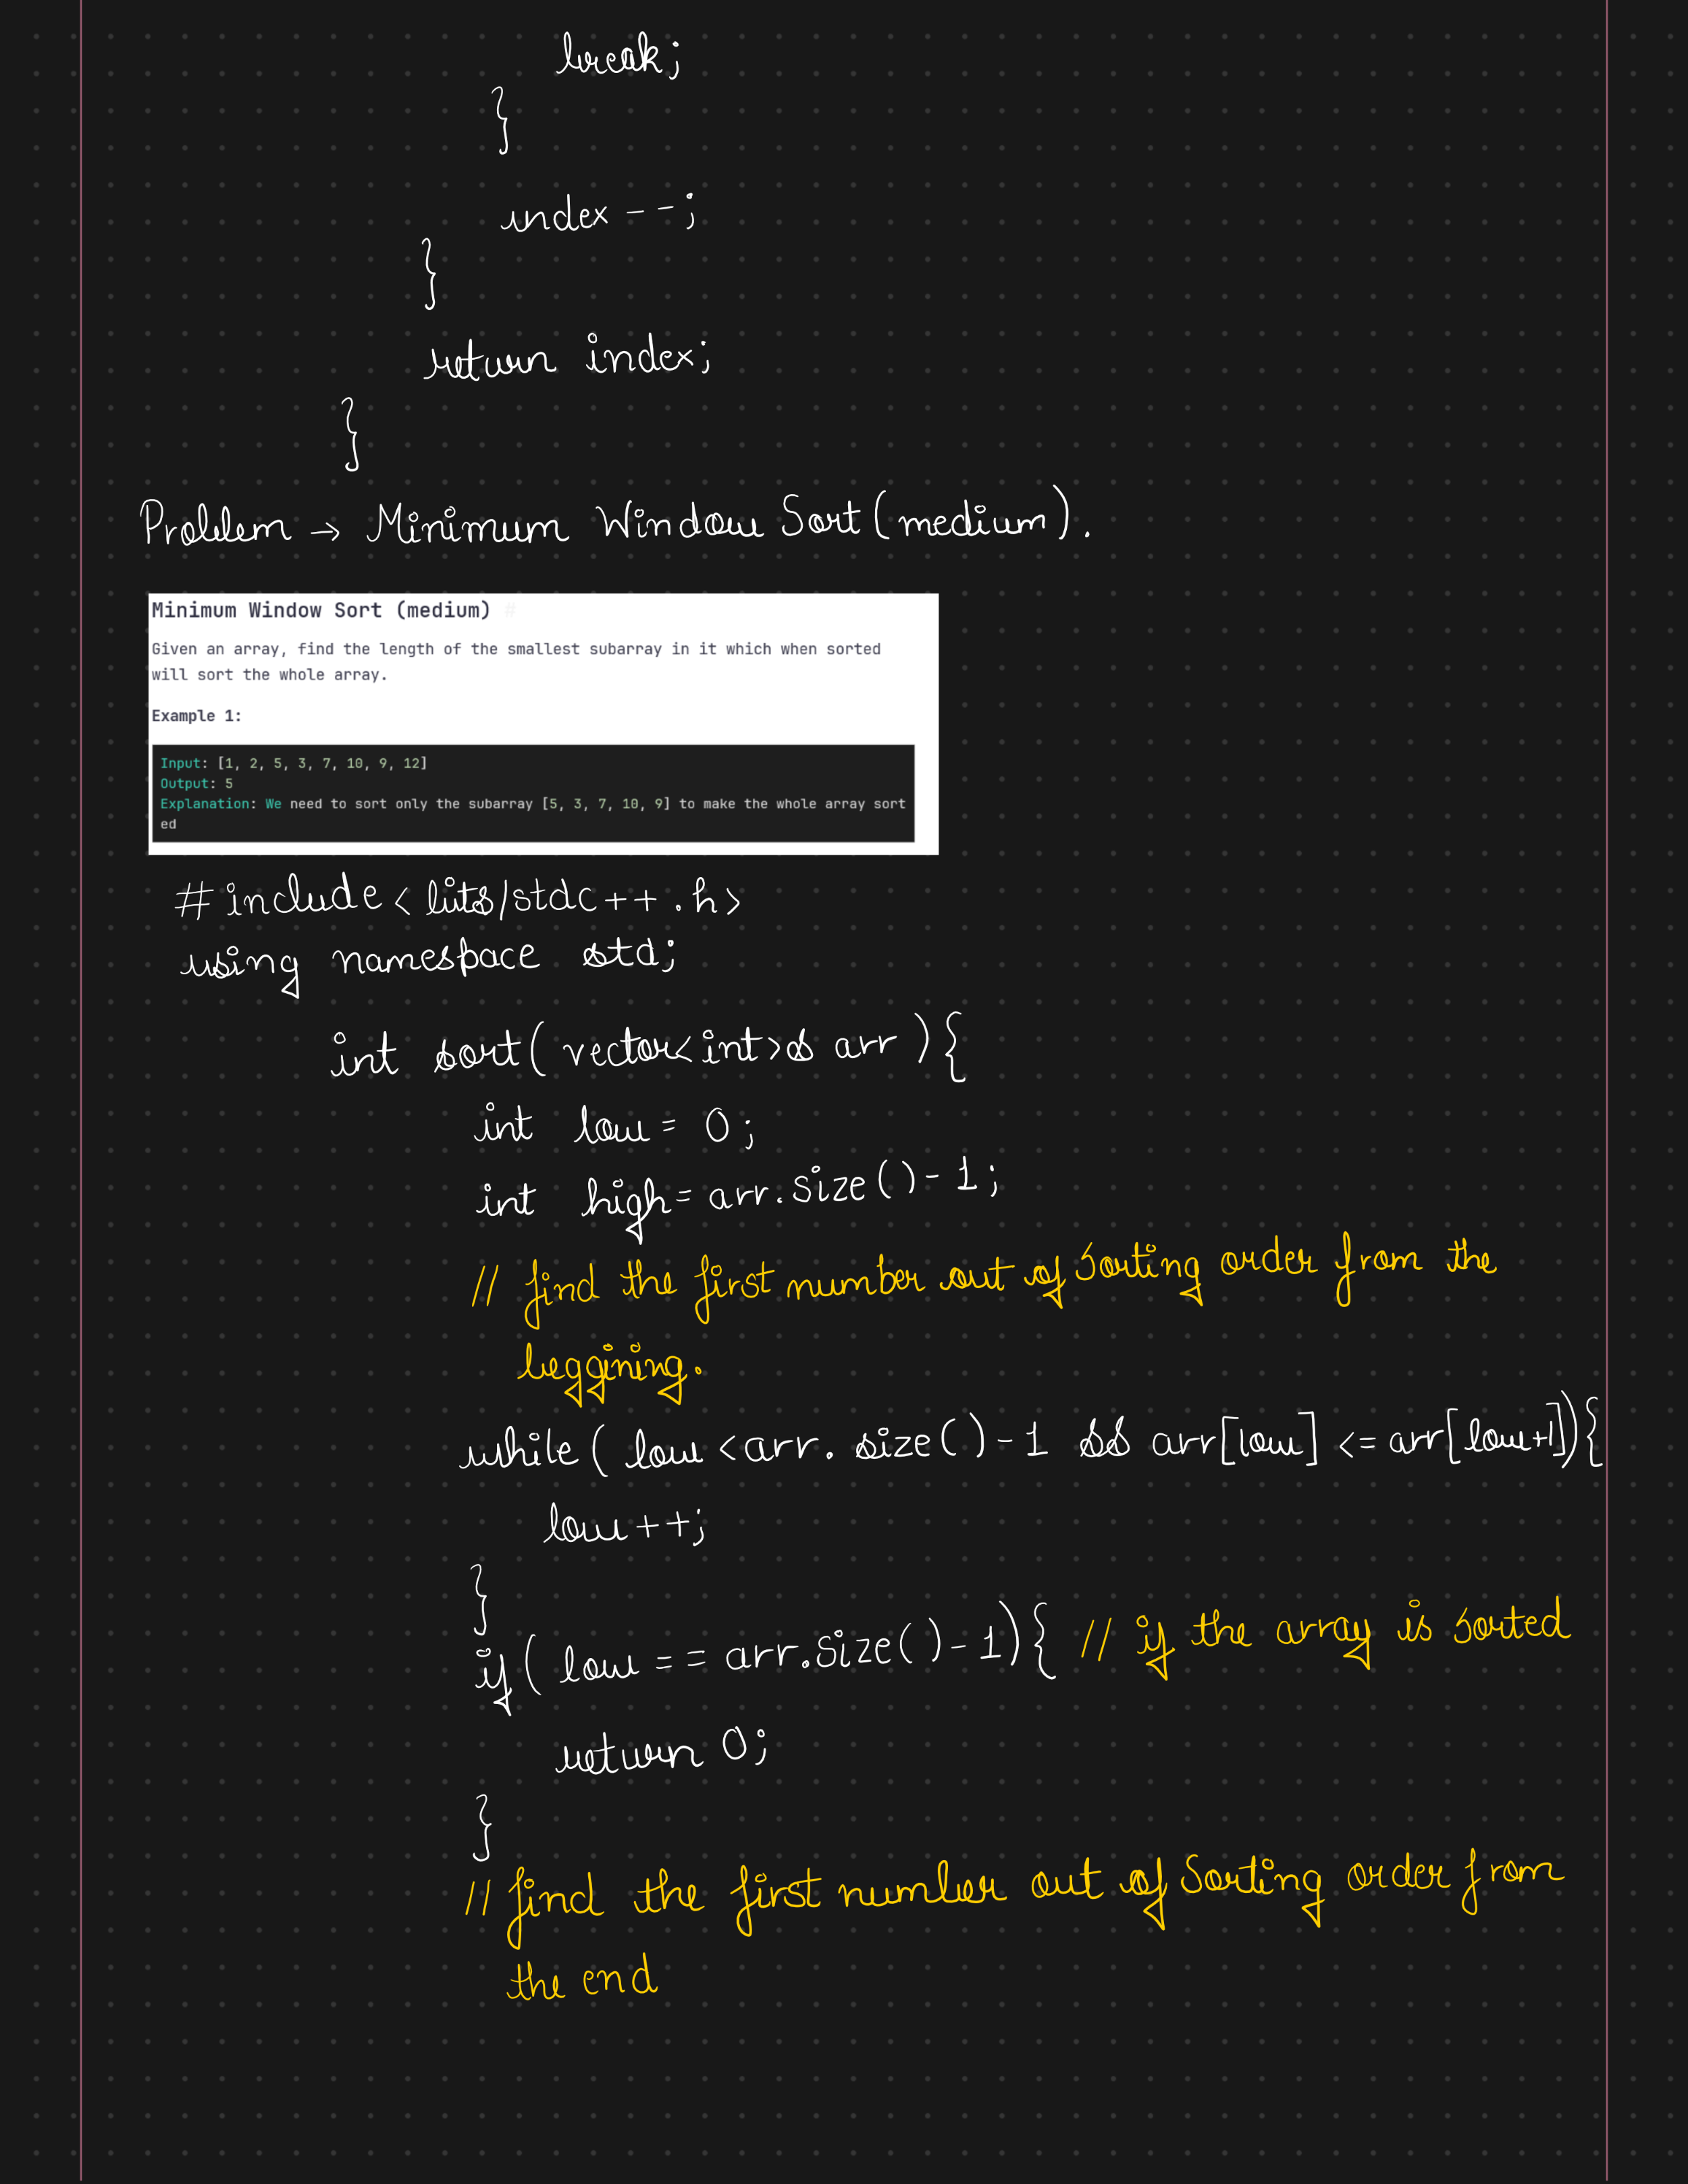 break;
}
index--;
}
return index;
}
Problem → Minimum Window Sort (medium).
Minimum Window Sort (medium) #
Given an array, find the length of the smallest subarray in it which when sorted
will sort the whole array.
Example 1:
Input: [1, 2, 5, 3, 7, 10, 9, 12]
Output: 5
Explanation: We need to sort only the subarray [5, 3, 7, 10, 9] to make the whole array sort
ed
#include<bits/stdc++.h>
using namespace std;
int sort(vector<int>& arr){
int low = 0;
int high = arr.size()-1;
// find the first number out of sorting order from the
beggining.
while( low <arr. size()-1 && arr[low] <= arr[low+1]){
low++;
}
if( low == arr.size()-1){ // if the array is sorted
return 0;
}
// find the first number out of sorting order from
the end